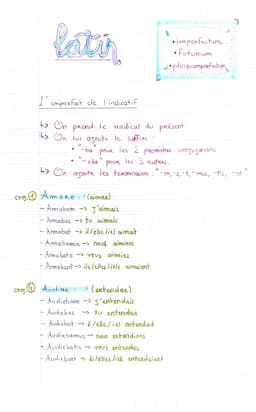 latin
• imperfectum
• futurum
• plusquamperfectum
L'imparfait de l'indicatif
↳ On prend le radical du présent
↳ On lui ajoute le suffixe :
• "-ba" pour les 2 premières conjugaisons
• "-eba" pour les 3 autres.
↳ On ajoute les terminaisons : "-m, -s, -t, -mus, -tis, -nt".
conj ① Amare : (aimer)
- Amabam → j'aimais
- Amabas → tu aimais
- Amabat → il/elle/iel aimait
- Amabamus → nous aimions
- Amabatis → vous aimiez
- Amabant → ils/elles/iels aimaient
conj ④ Audire : (entendre)
- Audiebam → j'entendais
- Audiebas → tu entendais
- Audiebat → il/elle/iel entendait
- Audiebamus → nous entendions
- Audiebatis → vous entendiez
- Audiebant → ils/elles/iels entendaient